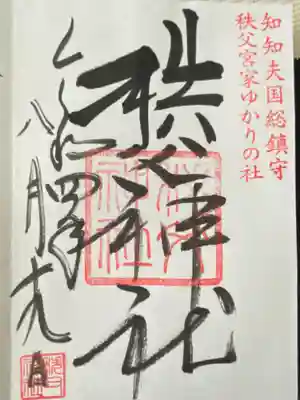 知知夫国総鎮守
秩父宮家ゆかりの社
秩父神社
令和四年
八月十九日